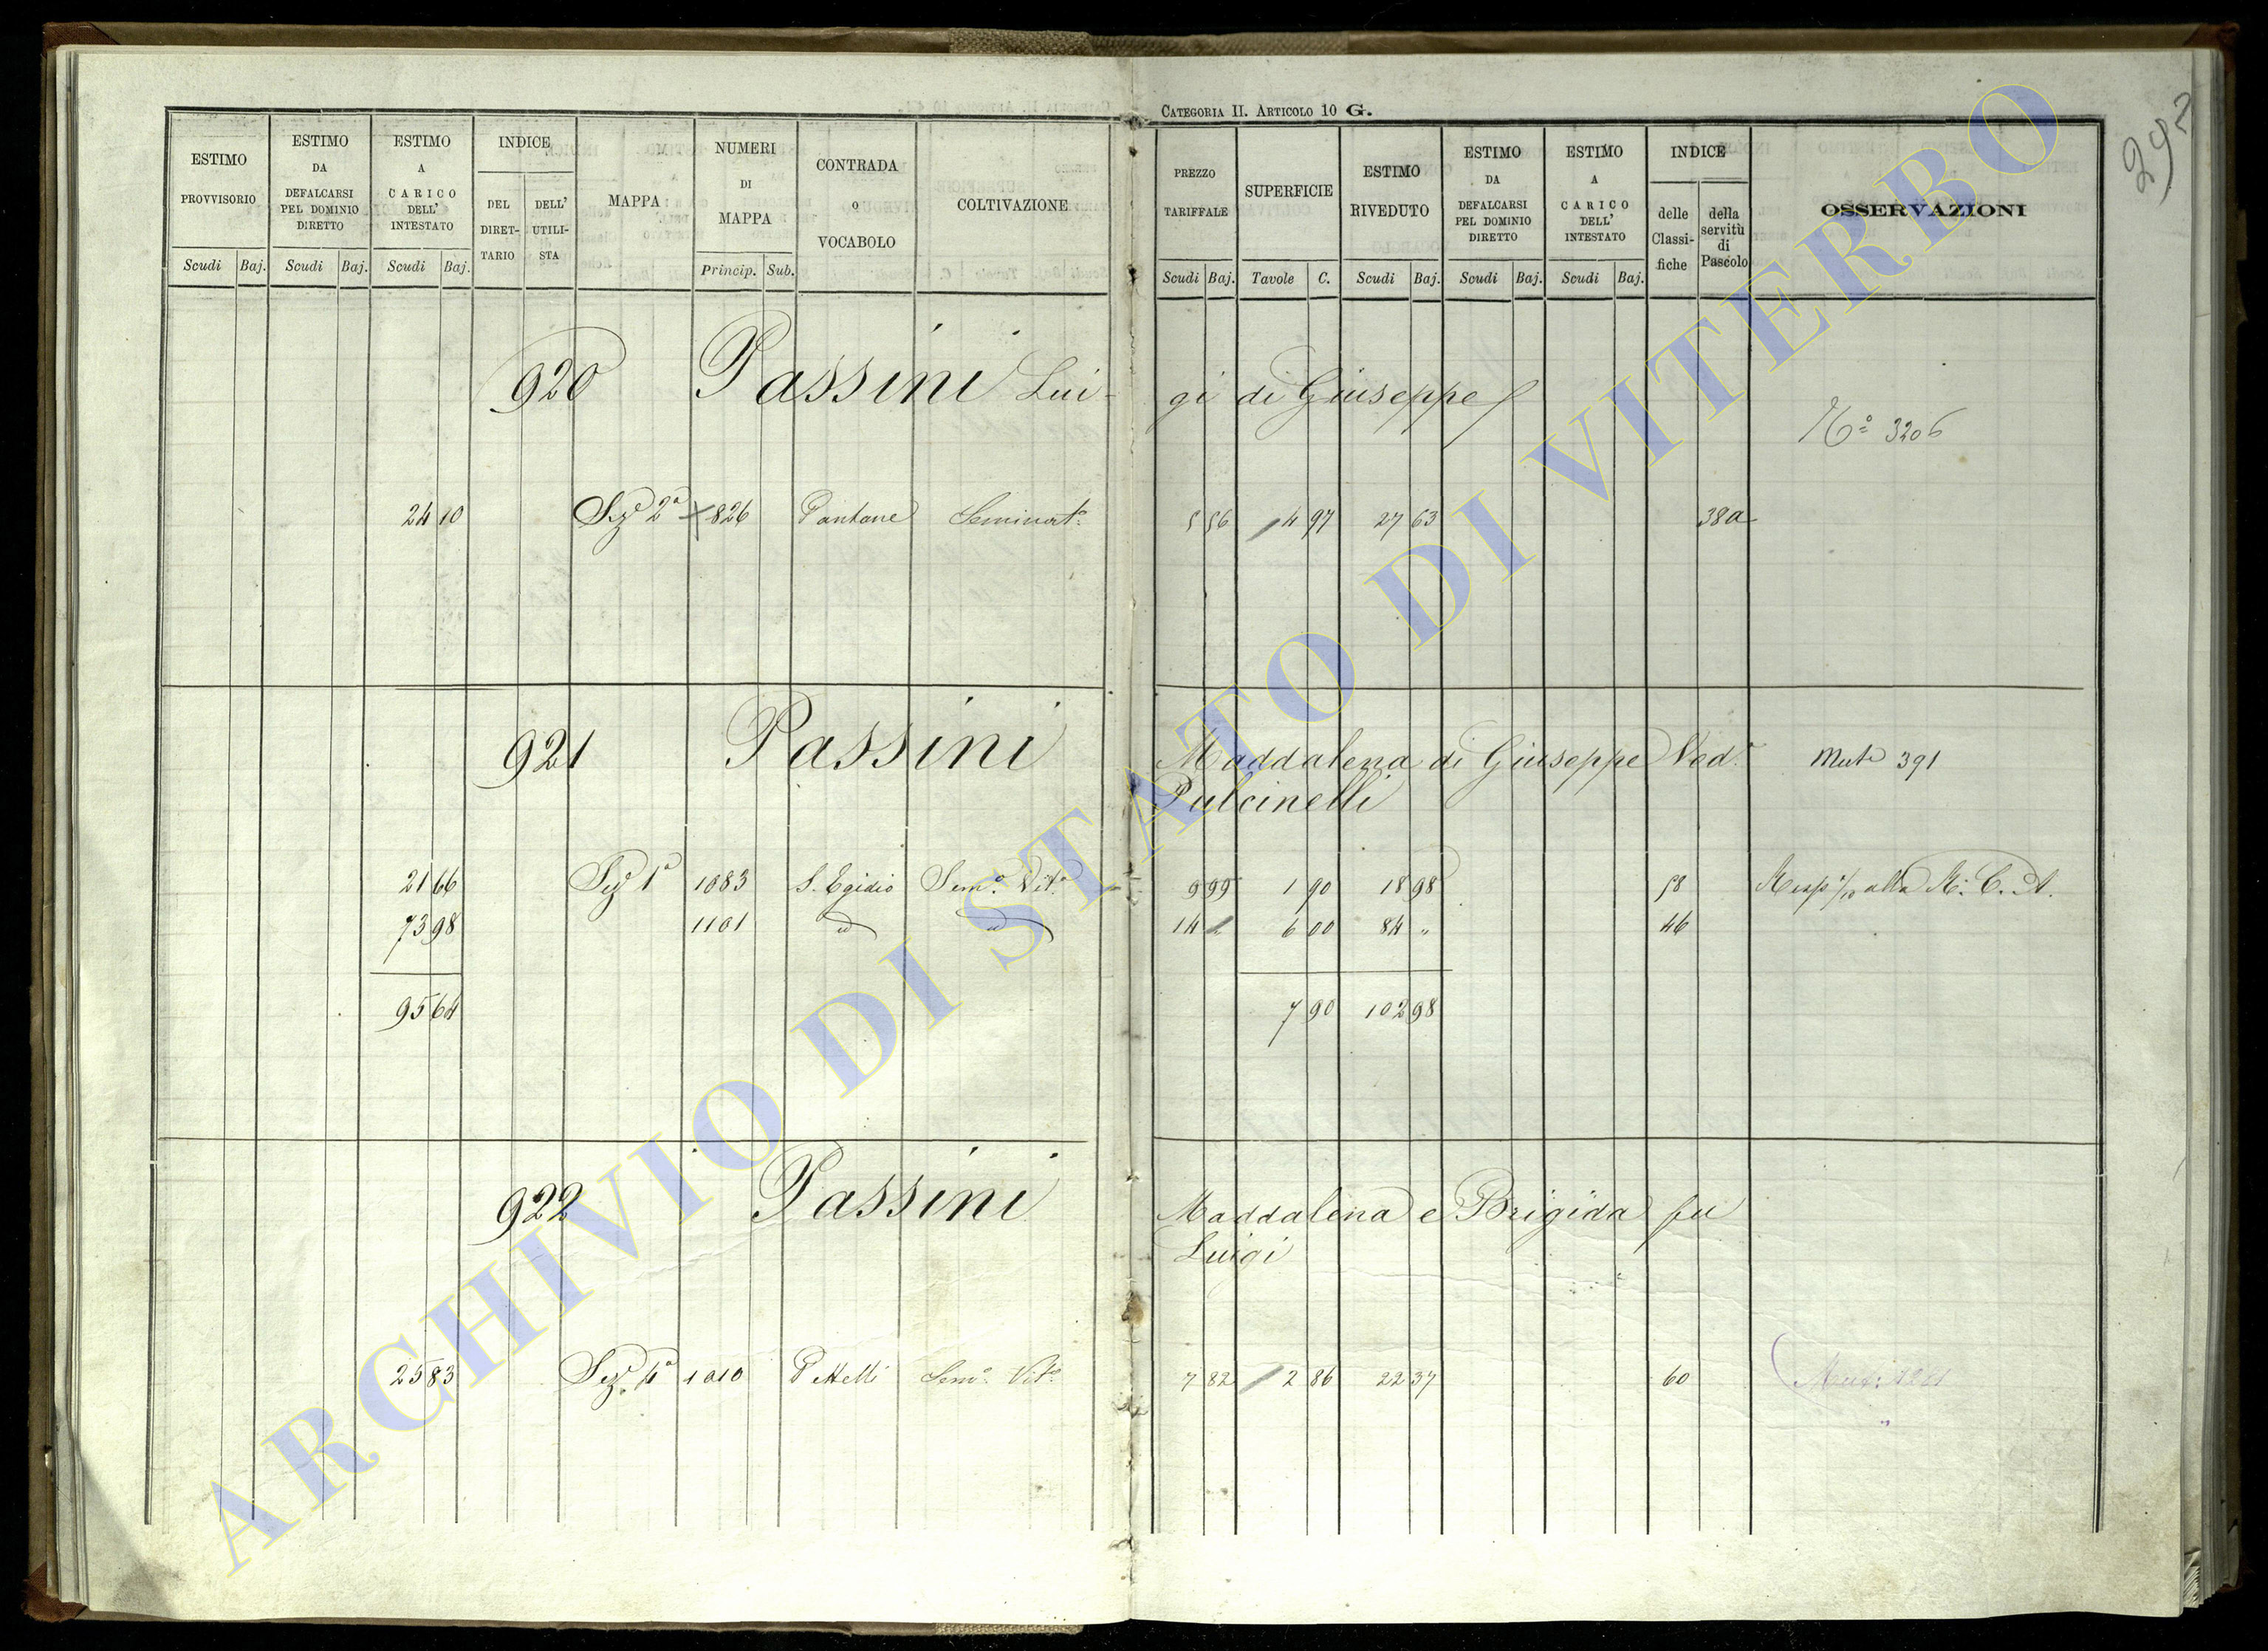 CATEGORIA II. ARTICOLO 10 G.
292
ESTIMO PROVVISORIO
ESTIMO DA DEFALCARSI PEL DOMINIO DIRETTO
ESTIMO A CARICO DELL' INTESTATO
INDICE
DEL DIRET-TARIO
DELL' UTILI-STA
MAPPA
NUMERI DI MAPPA
CONTRADA O VOCABOLO
COLTIVAZIONE
PREZZO TARIFFALE
SUPERFICIE
ESTIMO RIVEDUTO
ESTIMO DA DEFALCARSI PEL DOMINIO DIRETTO
ESTIMO A CARICO DELL' INTESTATO
INDICE
delle Classi-fiche
della servitù di Pascolo
OSSERVAZIONI
Scudi Baj. Scudi Baj. Scudi Baj. Princip. Sub. Scudi Baj. Tavole C. Scudi Baj. Scudi Baj. Scudi Baj.
920 Passini Lui-gi di Giuseppe
Nº 3206
24 10 Sezº 2ª 826 Pantane Seminatº 5 56 4 97 27 63 38a
921 Passini Maddalena di Giuseppe Vedª Mutº 391
Pulcinelli
21 66 Sezº 1ª 1083 S. Egidio Semº Vitº 9 99 1 90 18 98 58 alla M. C. A.
73 98 1101 id id 14 6 00 84 " 46
95 64 7 90 102 98
922 Passini Maddalena e Brigida fu
Luigi
25 83 Sezº 4ª 1010 Pettelli Semº Vitº 7 82 2 86 22 37 60
"
ARCHIVIO DI STATO DI VITERBO